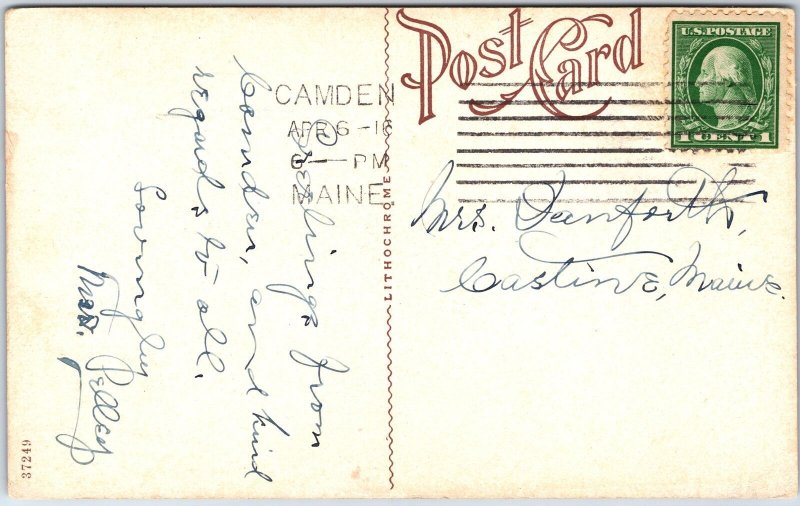 Post Card
U.S. POSTAGE
1 CENT 1
CAMDEN
APR 6-16
6—PM
MAINE
Mrs. Danforth,
Castine, Maine.
Greetings from
Camden, and kind
regards to all.
Lovingly
Mrs. Pelley
LITHOCHROME
37249